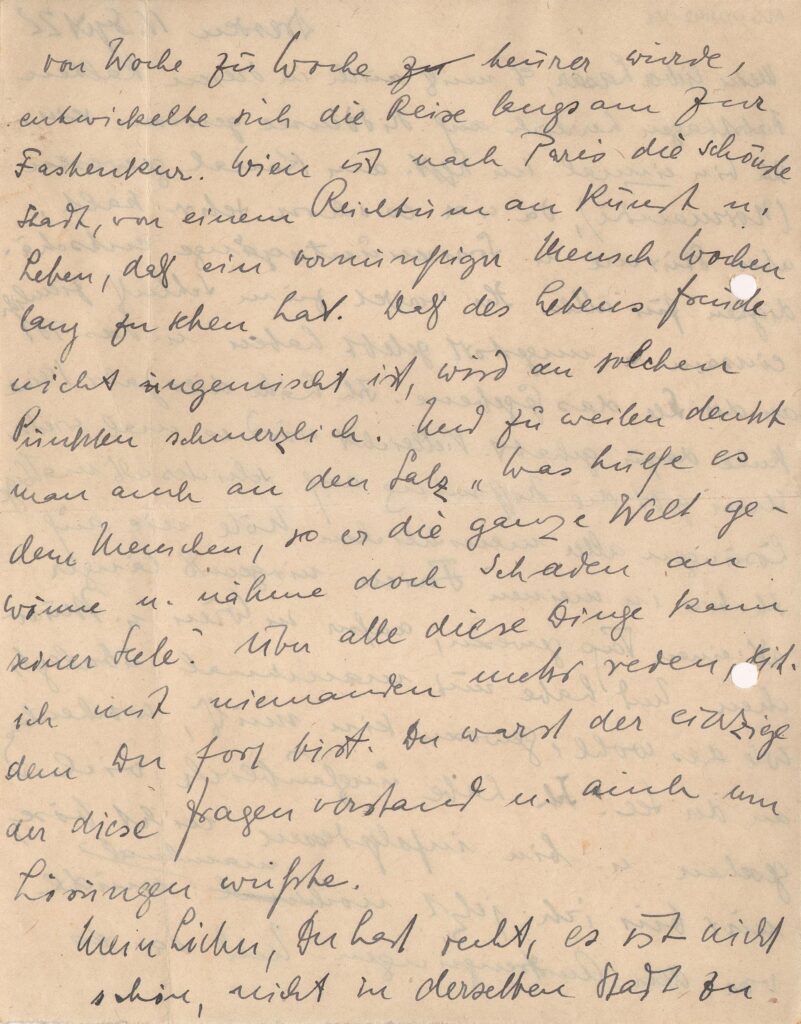 von Woche zu Woche zu teurer wurde,
entwickelte sich die Reise langsam zur
Fastenkur. Wien ist nach Paris die schönste
Stadt, von einem Reichtum an Kunst u.
Leben, daß ein vernünftiger Mensch Wochen
lang zu sehen hat. Daß des Lebens Freude
nicht ungemischt ist, wird an solchen
Punkten schmerzlich. Und zu weilen denkt
man auch an den Satz „Was hülfe es
dem Menschen, so er die ganze Welt ge-
wönne u. nähme doch Schaden an
seiner Seele". Über alle diese Dinge kann
ich mit niemanden mehr reden, seit-
dem Du fort bist. Du warst der einzige
der diese Fragen verstand u. auch um
Lösungen wußte.
Mein Lieber, Du hast recht, es ist nicht
schön, nicht in derselben Stadt zu